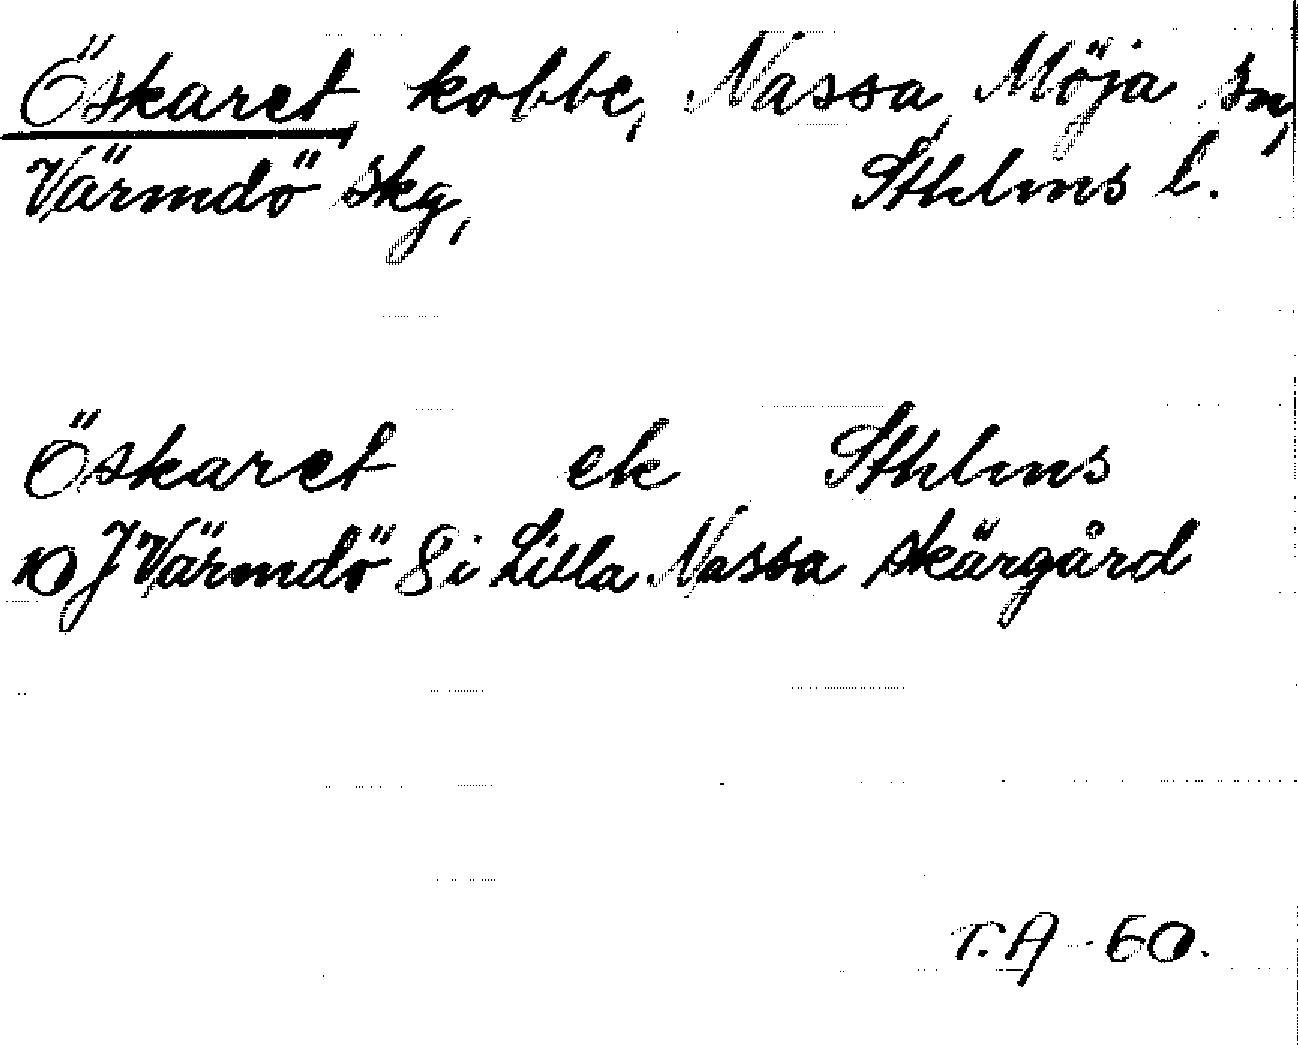 Öskaret, kobbe, Nassa, Möja sn,
Värmdö skg, Sthlms l.
Öskaret ek Sthlms
10 J Värmdö 8 i Lilla Nassa skärgård
T.A - 60.